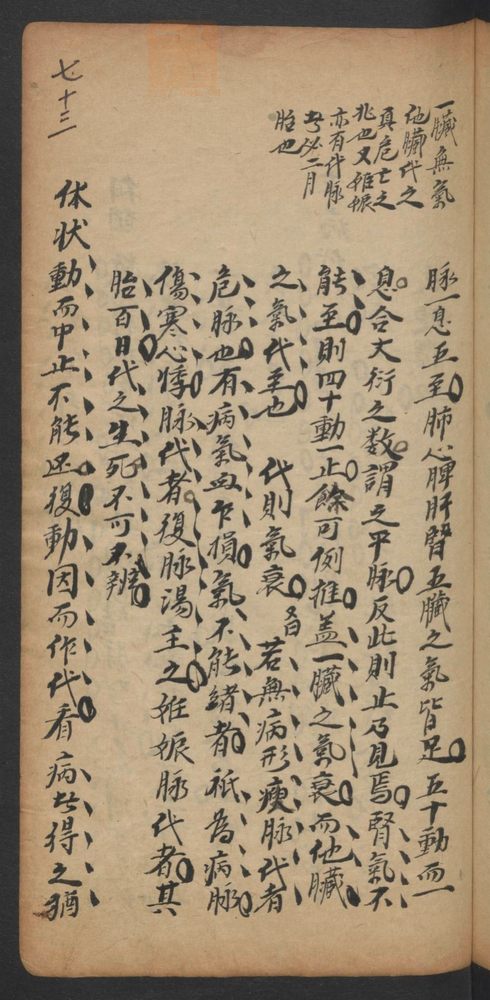 一臟無氣
他臟代之
真危亡之
兆也又妊娠
亦有代脉
者必二月
胎也
脉一息五至肺心脾肝腎五臟之氣皆足五十動而一
息合大衍之数謂之平脉反此則止乃見焉腎氣不
能至則四十動一止餘可例推盖一臟之氣衰而他臟
之氣代至也 代則氣衰 又曰 若無病形瘦脉代者
危脉也有病氣血乍損氣不能緒者祇為病脉
傷寒心悸脉代者復脉湯主之妊娠脉代者其
胎百日代之生死不可不辨
体状動而中止不能還復動因而作代看病者得之猶
七十三